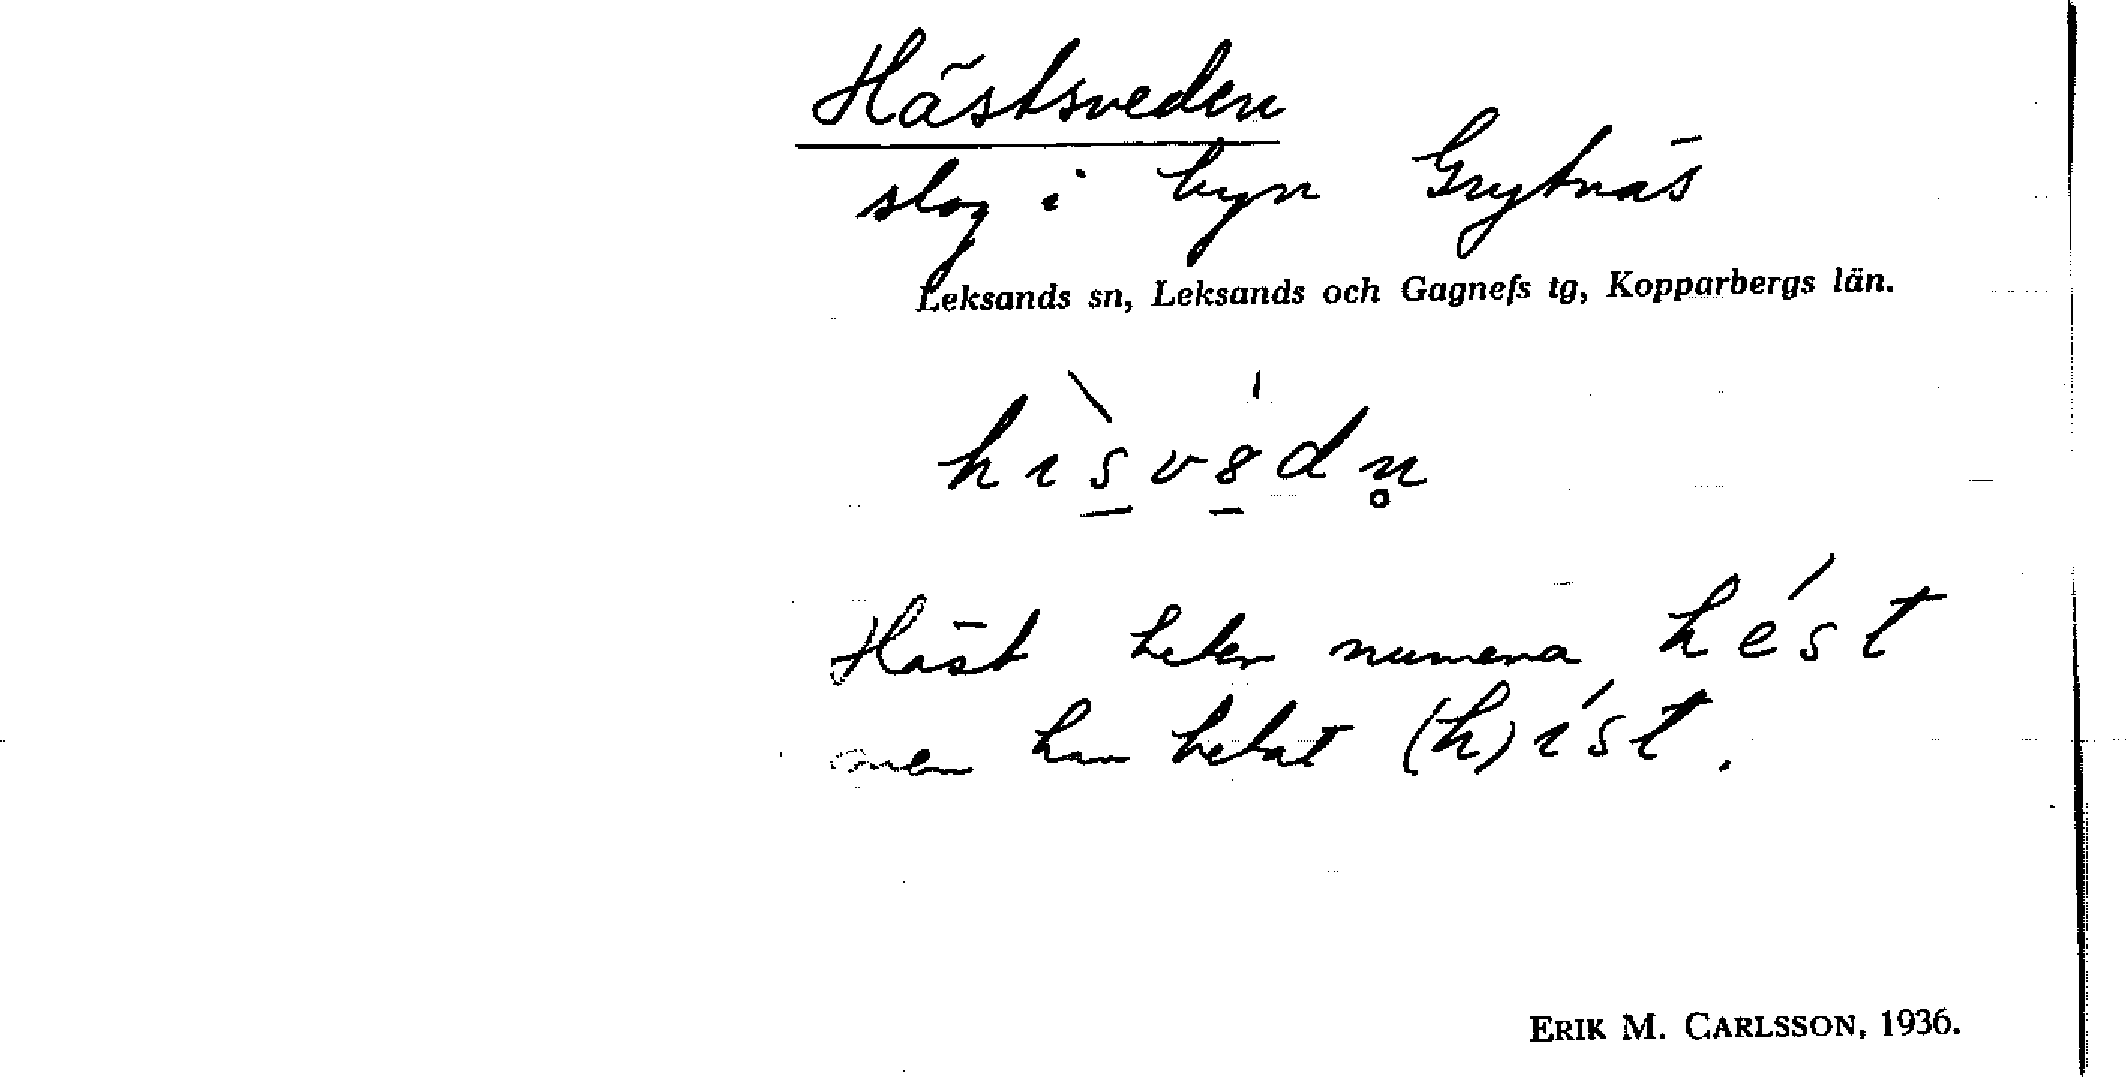 Hästsveden
slog i byn Grytnäs
Leksands sn, Leksands och Gagnefs tg, Kopparbergs län.
hìsv8́dn̥
Häst heter numera hést
men har hetat (h)íst.
ERIK M. CARLSSON, 1936.